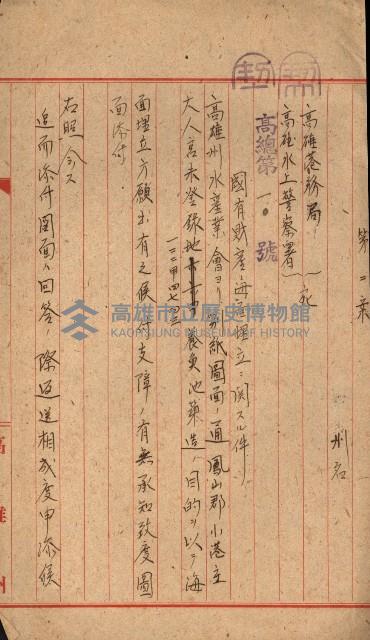 第二案
州名
高雄港務局
高雄水上警察署 宛
高總第一〇號
國有財産海面埋立ニ関スル件
高雄州水産業會ヨリ別紙圖面ノ通鳳山郡小港庄
大人宮未登録地
一二二甲四七
養魚池築造ノ目的ヲ以テ海
面埋立方願出有之候條支障ノ有無承知致度圖
面添付
右照会ス
追而添付圖面ハ回答ノ際返送相成度申添候
高雄市立歷史博物館
KAOHSIUNG MUSEUM OF HISTORY
高雄州